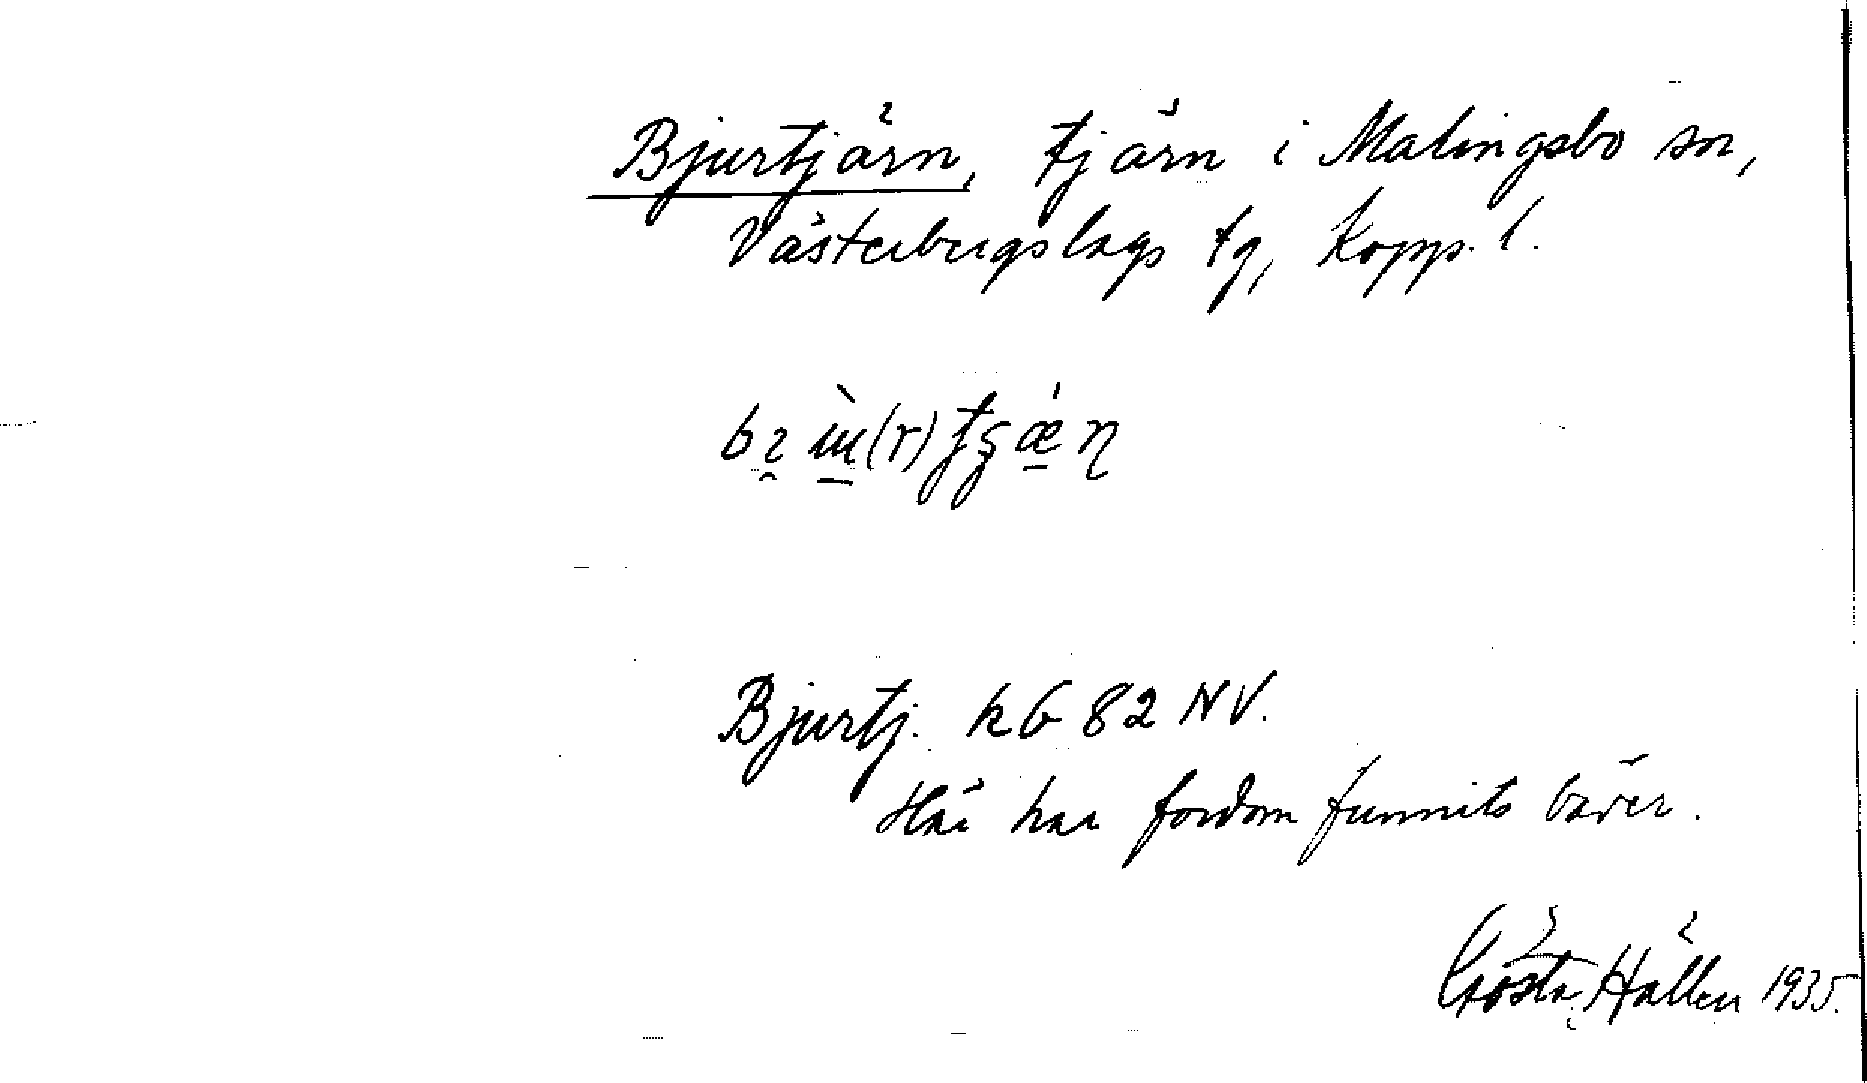 Bjurtjärn, tjärn i Malingsbo sn,
Västerbergslags tg, Kopp. l.
Bjurtj. kG 82 NV.
Här har fordom funnits bäver.
Gösta Hällen 1935.